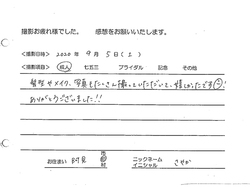 撮影お疲れ様でした。 感想をお願いいたします。
<撮影日時> 2020年 9月 5日(土)
<撮影項目> 成人 七五三 ブライダル 記念 その他
髪型やメイク、写真もたくさん撮っていただいて、嬉しかったです!
ありがとうございました!!
お住まい 阿見 市 町 村 ニックネーム イニシャル さやか